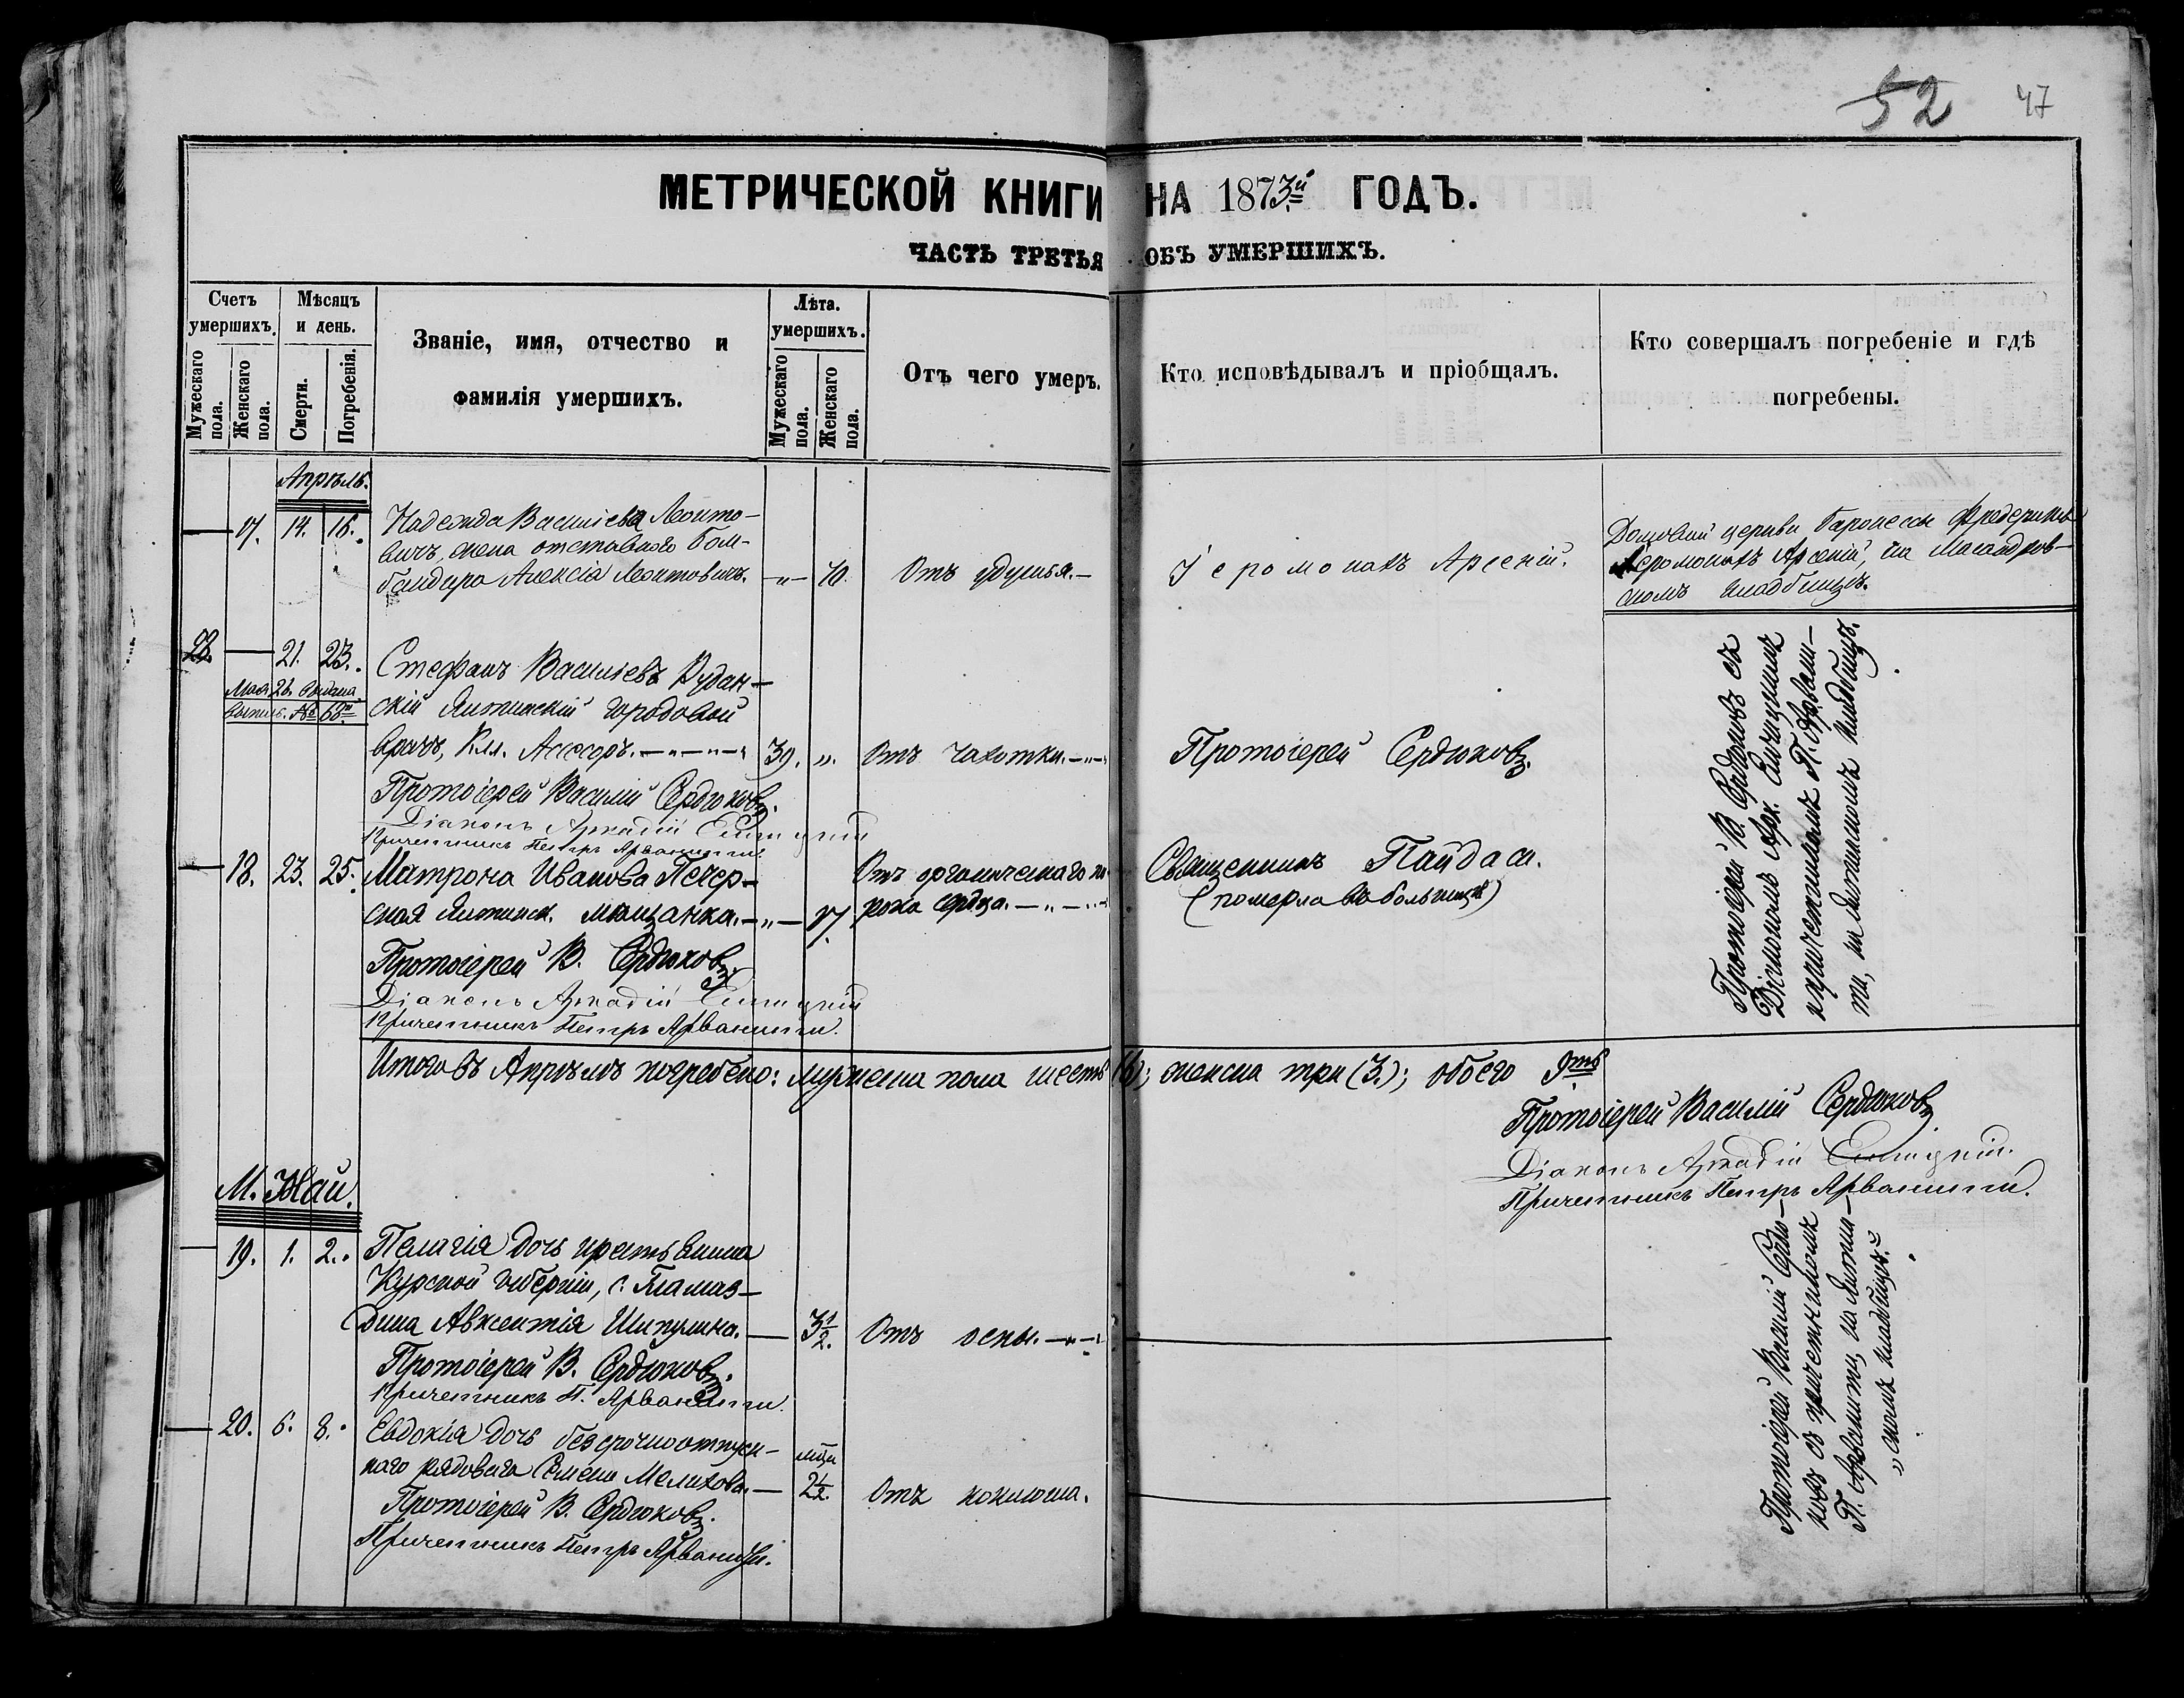 52 47
МЕТРИЧЕСКОЙ КНИГИ НА 1873й ГОДЪ.
ЧАСТЬ ТРЕТЬЯ ОБЪ УМЕРШИХЪ.
Счетъ умершихъ.
Мужескаго пола.
Женскаго пола.
Мѣсяцъ и день.
Смерти.
Погребенія.
Званіе, имя, отчество и
фамилія умершихъ.
Лѣта умершихъ.
Мужескаго пола.
Женскаго пола.
Отъ чего умеръ.
Кто исповѣдывалъ и пріобщалъ.
Кто совершалъ погребеніе и гдѣ
погребены.
Апрѣль.
17. 14. 16. Надежда Васильева Леонто-
вичъ, жена отставного бом-
бандира Алексія Леонтовичъ. —„— 70. Отъ удушья.—
Іеромонахъ Арсеній.
Домовой церкви баронессы Фредерикс
Іеромонахъ Арсеній, на Масандров-
скомъ кладбищѣ.
28. — 21. 23. Стефанъ Васильевъ Рудан-
Мая 28 выдана
выпись № 68
скій Ялтинскій городовой
врачъ, Кол. Ассесоръ.—„—„— 39. „. Отъ чахотки.—„—
Протоіерей Сердюковъ.
Протоіерей Василій Сердюковъ.
Діаконъ Аркадій
Причетникъ Петръ Арванитти.
— 18. 23. 25. Матрона Иванова Печер-
ская Ялтинск. мѣщанка.—„— 17. Отъ органическаго по-
рока сердца.—„—„—
Священникъ Пайдаси.
(померла въ больницѣ)
Протоіерей В. Сердюковъ.
Діаконъ Аркадій
Причетникъ Петръ Арванитти.
Протоіерей В. Сердюковъ съ
Діакономъ Арк.
и причетникомъ П. Арвани-
ти, на Ялтинскомъ кладбищѣ.
Итого въ Апрѣлѣ погребено: мужеска пола шесть (6); женска три (3.); обоего 9ть
Протоіерей Василій Сердюковъ.
Діаконъ Аркадій
Причетникъ Петръ Арванитти.
М. Май.
— 19. 1. 2. Пелагія дочь крестьянина
Курской губерніи,
дина Авксентія Шипулина.— 3½. Отъ оспы.—„—
Протоіерей В. Сердюковъ.
Причетникъ П. Арванитти.
— 20. 6. 8. Евдокія дочь безсрочноотпуск-
наго рядоваго Семена Мелихова.— мѣц. 2½. Отъ коклюша.
Протоіерей В. Сердюковъ.
Причетникъ Петръ Арванитти.
Протоіерей Василій Сердю-
ковъ съ причетникомъ
П. Арванитти, на Ялтин-
„скомъ кладбищѣ."